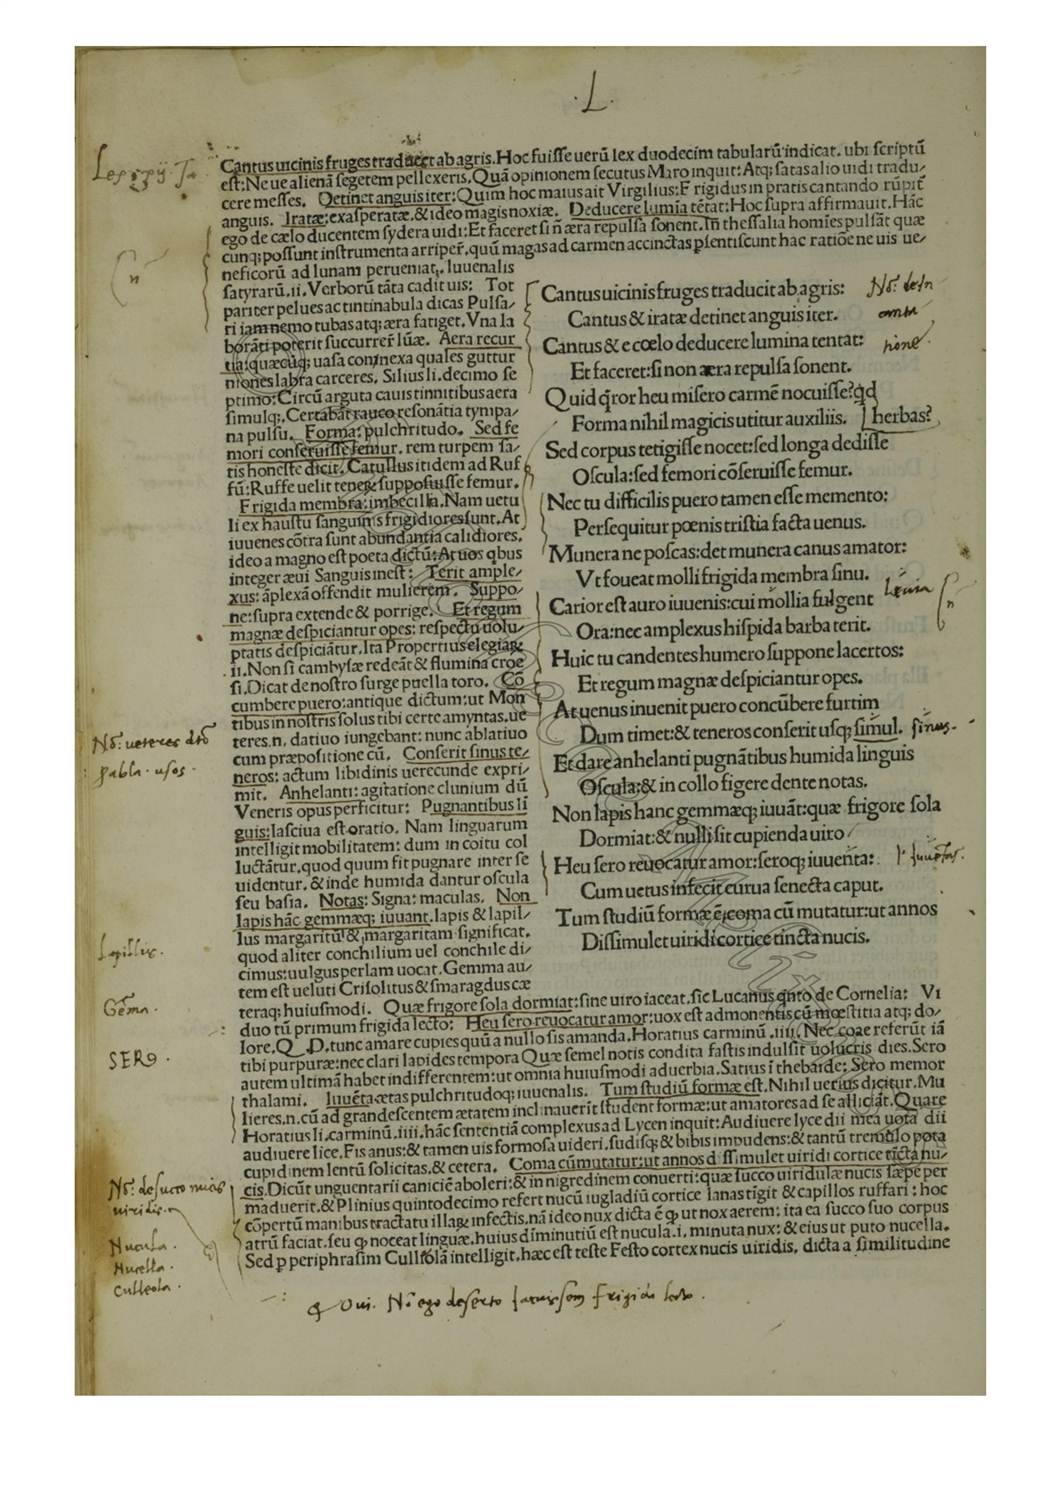 .L.
Cantus uicinis fruges traducit ab agris. Hoc fuisse uerū lex duodecim tabularū indicat. ubi scriptū
est: Ne ue alienā segetem pellexeris. Quā opinionem secutus Maro inquit: Atq; satas alio uidi tradu-
cere messes. Detinet anguis iter: Quim hoc maius ait Virgilius: Frigidus in pratis cantando rūpit̃
anguis. Iratæ: exasperatæ. & ideo magis noxiæ. Deducere lumia tētat: Hoc supra affirmauit. Hāc
ego de cælo ducentem sydera uidi: Et faceret si ñ æra repulsa sonent. In thessalia homīes pulsāt quæ
cunq; possunt instrumenta arriper̄. quū magas ad carmen accinctas p̄sentiscunt hac ratiōe ne uis ue-
neficorū ad lunam perueniat. Iuuenalis
satyrarū. ii. Verborū tāta cadit uis: Tot
pariter pelues ac tintinabula dicas Pulsa-
ri iam nemo tubas atq; æra fatiget. Vna la
borāti poterit succurrer̄ lūæ. Aera recur
tia: quæcūq; uasa connexa quales guttur
niones labra carceres. Silius li. decimo se
ptimo: Circū arguta cauis tinnitibus aera
simulq;. Certabāt rauco resonātia tympa-
na pulsu. Forma: pulchritudo. Sed fe
mori conseruisse femur. rem turpem sa-
tis honeste dicit. Catullus itidem ad Ruf
fū: Ruffe uelit tenere supposuisse femur.
Frigida membra: imbecilla. Nam uetu
li ex haustu sanguinis frigidiores sunt. At
iuuenes cōtra sunt abundantia calidiores.
ideo a magno est poeta dictū: At uos qbus
integer æui Sanguis inest: Terit ample-
xus: āplexā offendit mulierem. Suppo-
ne: supra extende & porrige. Et regum
magnæ despiciantur opes: respectu uolu-
ptatis despiciātur. Ita Propertius elegiaq;
.ii. Non si cambysæ redeāt & flumina croe
si. Dicat de nostro surge puella toro. Cō
cumbere puero: antique dictum: ut Mon
tibus in nostris solus tibi certe amyntas. ue
teres. n. datiuo iungebant: nunc ablatiuo
cum præpositione cū. Conserit sinus te-
neros: actum libidinis uerecunde expri-
mit. Anhelanti: agitatione clunium dū
Veneris opus perficitur: Pugnantibus lī
guis: lasciua est oratio. Nam linguarum
intelligit mobilitatem: dum in coitu col
luctātur. quod quum fit pugnare inter se
uidentur. & inde humida dantur oscula
seu basia. Notas: Signa: maculas. Non
lapis hāc gemmæq; iuuant. lapis & lapil-
lus margaritū & margaritam significat.
quod aliter conchilium uel conchile di-
cimus: uulgus perlam uocat. Gemma au-
tem est ueluti Crisolitus & smaragdus cæ
teraq; huiusmodi. Quæ frigore sola dormiat: sine uiro iaceat. sic Lucanus qnto de Cornelia: Vi
duo tū primum frigida lecto: Heu sero reuocatur amor: uox est admonentis cū mœstitia atq; do-
lore. Q. D. tunc amare cupies quū a nullo sis amanda. Horatius carminū .iiii. Nec coæ referūt iā
tibi purpuræ: nec clari lapides tempora Quæ semel notis condita fastis indulsit uolucris dies. Sero
autem ultimā habet indifferentem: ut omnia huiusmodi aduerbia. Satius ī thebaide: Sero memor
thalami. Iuuēta ætas pulchritudoq; iuuenalis. Tum studiū formæ est. Nihil uerius dicitur. Mu
lieres. n. cū ad grandescentem ætatem inclinauerīt student formæ: ut amatores ad se alliciāt. Quare
Horatius li. carminū. iiii. hāc sententiā complexus ad Lycen inquit: Audiuere lyce dii mea uota dii
audiuere lice. Fis anus: & tamen uis formosa uideri. ludisq; & bibis impudens: & tantū tremulo pota
cupidinem lentū solicitas. & cetera. Coma cū mutatur: ut annos dissimulet uiridi cortice tīcta nu-
cis. Dicūt unguentarii caniciē aboleri: & in nigredinem conuerti: quæ succo uiridulæ nucis sæpe per
maduerit. & Plinius quintodecimo refert nucū iugladiū cortice lanas tigit & capillos ruffari: hoc
cōpertū manibus tractatu illaq; infectis. nā ideo nux dicta ē q ut nox aerem: ita ea succo suo corpus
atrū faciat. seu q noceat linguæ. huius diminutiū est nucula. i. minuta nux: & eius ut puto nucella.
Sed p periphrasim Culleolā intelligit. hæc est teste Festo cortex nucis uiridis. dicta a similitudine
Cantus uicinis fruges traducit ab agris:
Cantus & iratæ detinet anguis iter.
Cantus & e cœlo deducere lumina tentat:
Et faceret: si non æra repulsa sonent.
Quid q̄ror heu misero carmē nocuisse? qd
Forma nihil magicis utitur auxiliis. herbas?
Sed corpus tetigisse nocet: sed longa dedisse
Oscula: sed femori cōseruisse femur.
Nec tu difficilis puero tamen esse memento:
Persequitur pœnis tristia facta uenus.
Munera ne poscas: det munera canus amator:
Vt foueat molli frigida membra sinu.
Carior est auro iuuenis: cui mollia fulgent
Ora: nec amplexus hispida barba terit.
Huic tu candentes humero suppone lacertos:
Et regum magnæ despiciantur opes.
At uenus inuenit puero concūbere furtim
Dum timet: & teneros conserit usq; simul.
Et dare anhelanti pugnātibus humida linguis
Oscula: & in collo figere dente notas.
Non lapis hanc gemmæq; iuuāt: quæ frigore sola
Dormiat: & nulli sit cupienda uiro
Heu sero reuocatur amor: seroq; iuuenta:
Cum uetus infecit curua senecta caput.
Tum studiū formæ ē; coma cū mutatur: ut annos
Dissimulet uiridi cortice tincta nucis.
sinus.
Lapillus.
Gēma.
SERO.
Nucula.
Nucella.
Culleola.